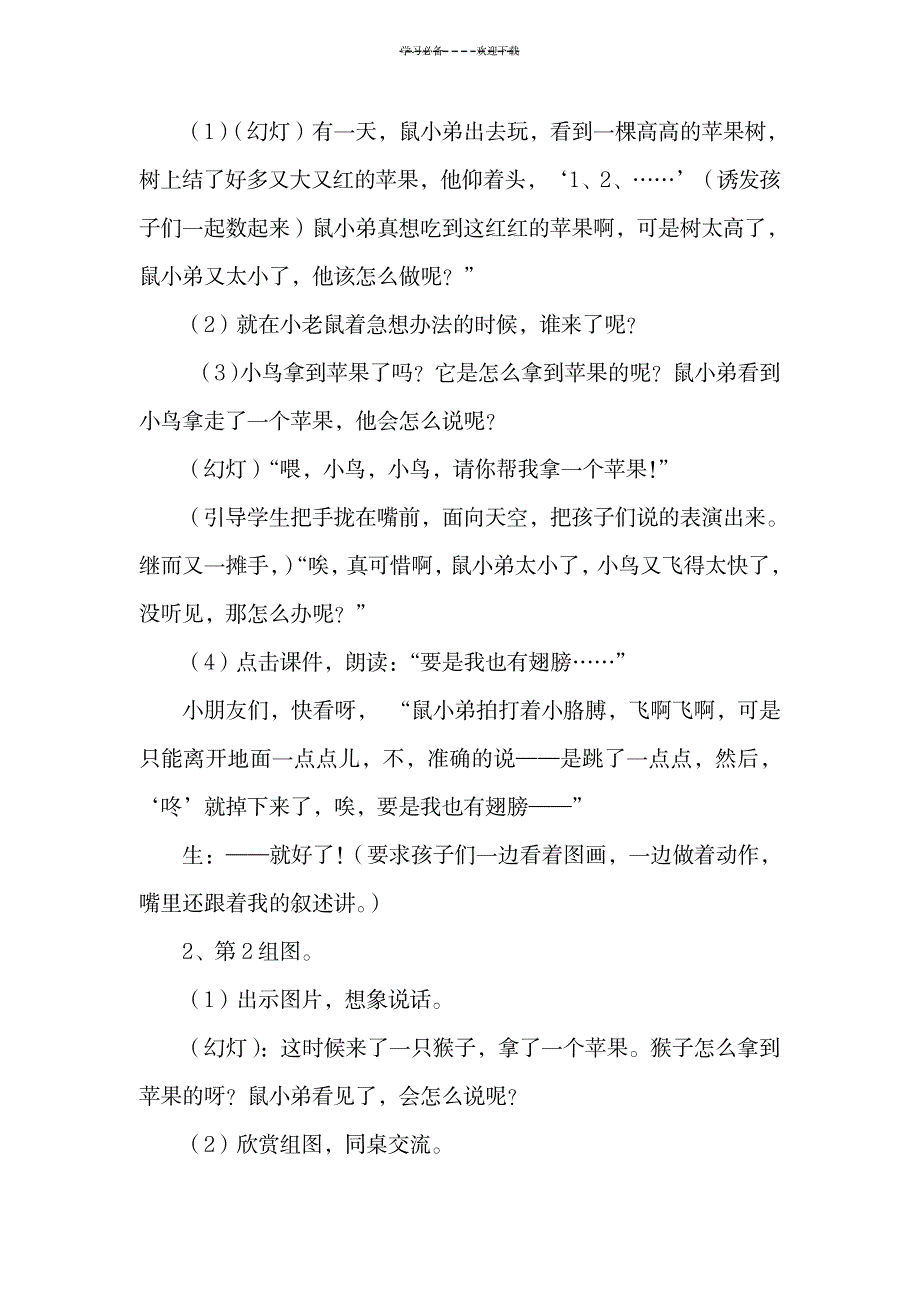 学习必备----欢迎下载
（1）（幻灯）有一天，鼠小弟出去玩，看到一棵高高的苹果树，
树上结了好多又大又红的苹果，他仰着头，‘1、2、……’（诱发孩
子们一起数起来）鼠小弟真想吃到这红红的苹果啊，可是树太高了，
鼠小弟又太小了，他该怎么做呢？”
（2）就在小老鼠着急想办法的时候，谁来了呢？
（3）小鸟拿到苹果了吗？它是怎么拿到苹果的呢？鼠小弟看到
小鸟拿走了一个苹果，他会怎么说呢？
（幻灯）“喂，小鸟，小鸟，请你帮我拿一个苹果！”
（引导学生把手拢在嘴前，面向天空，把孩子们说的表演出来。
继而又一摊手，）“唉，真可惜啊，鼠小弟太小了，小鸟又飞得太快了，
没听见，那怎么办呢？”
（4）点击课件，朗读：“要是我也有翅膀……”
小朋友们，快看呀， “鼠小弟拍打着小胳膊，飞啊飞啊，可是
只能离开地面一点点儿，不，准确的说——是跳了一点点，然后，
‘咚’就掉下来了，唉，要是我也有翅膀——”
生：——就好了！（要求孩子们一边看着图画，一边做着动作，
嘴里还跟着我的叙述讲。）
2、第2组图。
（1）出示图片，想象说话。
（幻灯）：这时候来了一只猴子，拿了一个苹果。猴子怎么拿到
苹果的呀？鼠小弟看见了，会怎么说呢？
（2）欣赏组图，同桌交流。